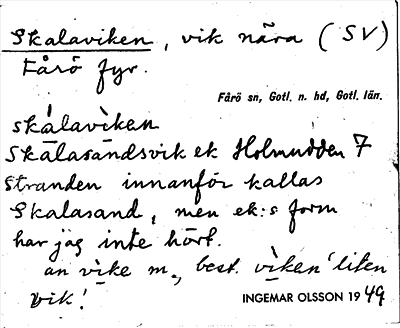 Skalaviken, vik nära (SV)
Fårö fyr.
Fårö sn, Gotl. n. hd, Gotl. län.
skálavìken
Skälasandsvik ek Holmudden 7
Stranden innanför kallas
Skalasand, men ek:s form
har jag inte hört.
an vìke m., best. vìken 'liten
vik'.
INGEMAR OLSSON 1949